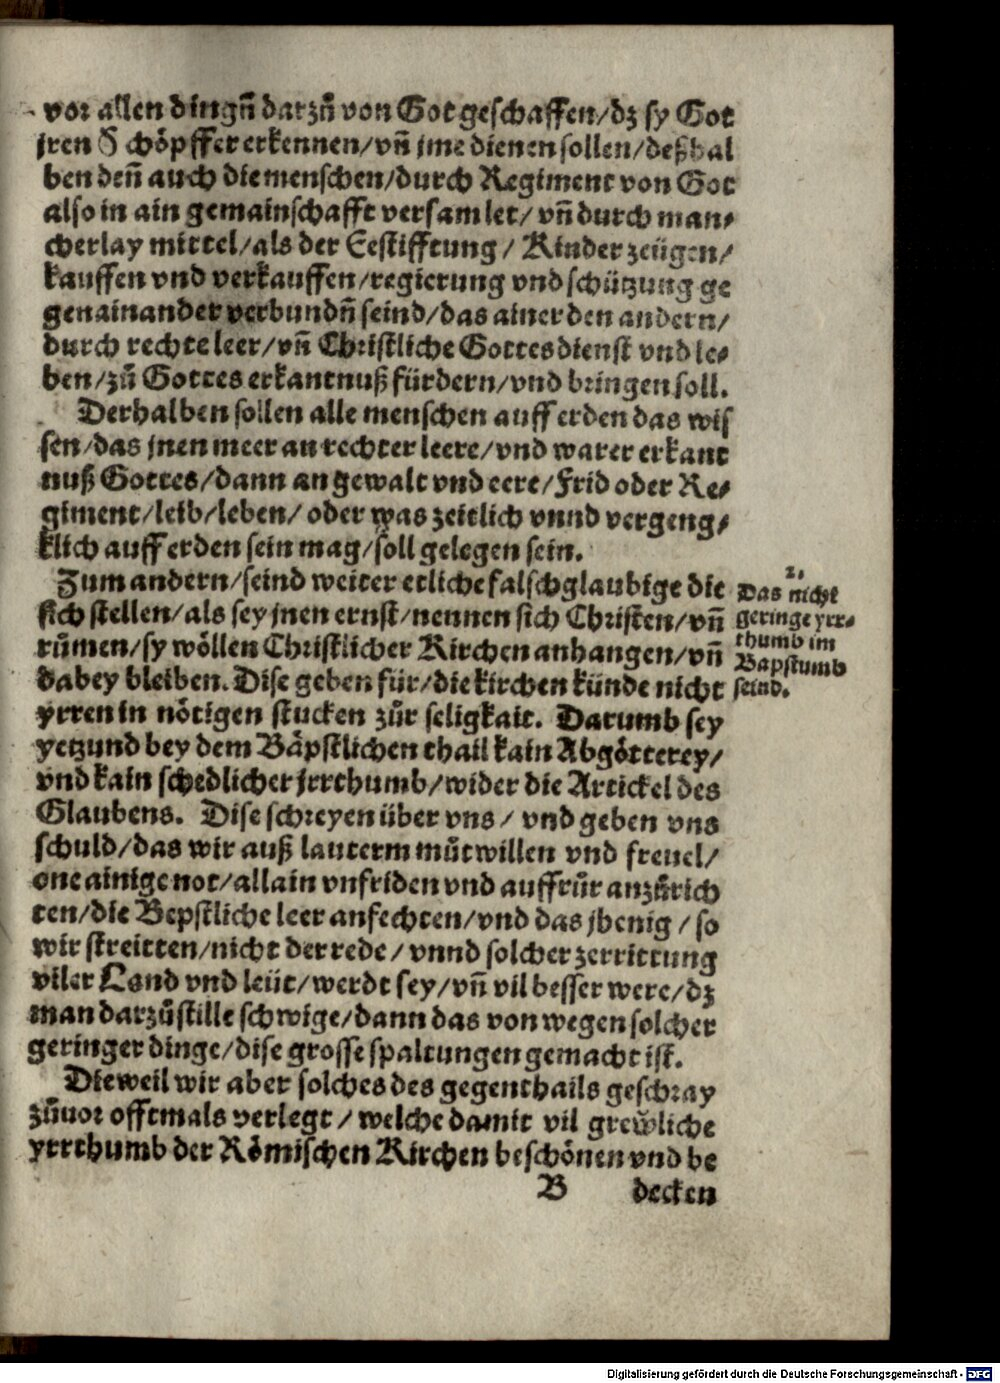 vor allen dingñ darzů von Got geschaffen/dz sy Got
jren Schöpffer erkennen/vñ jme dienen sollen/deßhal
ben deñ auch die menschen/durch Regiment von Got
also in ain gemainschafft versamlet/vñ durch man-
cherlay mittel/als der Eestifftung/ Kinder zeügen/
kauffen vnd verkauffen/regierung vnd schützung ge
genainander verbundñ seind/das ainer den andern/
durch rechte leer/vñ Christliche Gottesdienst vnd le-
ben/zů Gottes erkantnuß fürdern/vnd bringen soll.
Derhalben sollen alle menschen auff erden das wis
sen/das jnen meer an rechter leere/vnd warer erkant
nuß Gottes/dann an gewalt vnd eere/Frid oder Re-
giment/leib/leben/ oder was zeitlich vnnd vergeng-
klich auff erden sein mag/soll gelegen sein.
Zum andern/seind weiter etliche falschglaubige die
sich stellen/als sey jnen ernst/nennen sich Christen/vñ
růmen/sy wöllen Christlicher Kirchen anhangen/vñ
dabey bleiben. Dise geben für/die kirchen künde nicht
yrren in nötigen stucken zůr seligkait. Darumb sey
yetzund bey dem Bäpstlichen thail kain Abgötterey/
vnd kain schedlicher jrrthumb/wider die Artickel des
Glaubens. Dise schreyen über vns/ vnd geben vns
schuld/das wir auß lauterm můtwillen vnd freuel/
one ainige not/allain vnfriden vnd auffrůr anzůrich
ten/die Bepstliche leer anfechten/vnd das jhenig/so
wir streitten/nicht der rede/ vnnd solcher zerrittung
viler Land vnd leüt/werdt sey/vñ vil besser were/dz
man darzů stille schwige/dann das von wegen solcher
geringer dinge/dise grosse spaltungen gemacht ist.
Dieweil wir aber solches des gegenthails geschray
zůuor offtmals verlegt/ welche damit vil greẘliche
yrrthumb der Römischen Kirchen beschönen vnd be
B decken
2.
Das nicht
geringe yrr-
thumb im
Bapstumb
seind.
Digitalisierung gefördert durch die Deutsche Forschungsgemeinschaft - DFG